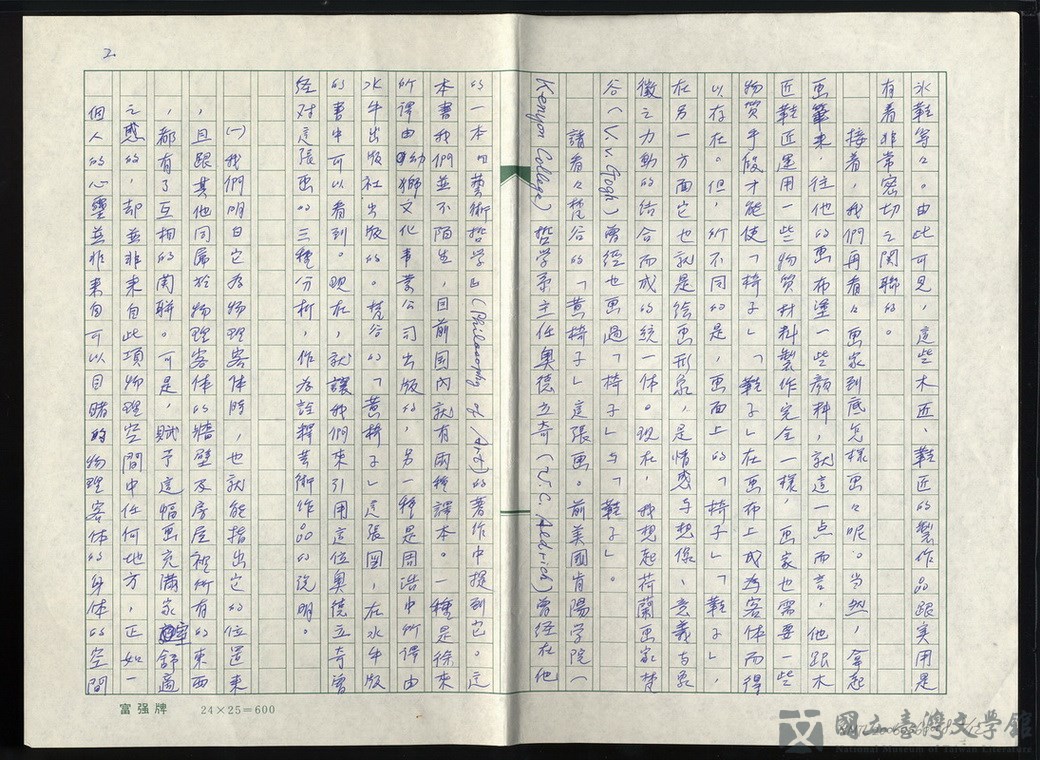 2.
氷鞋等々。由此可見，這些木匠、鞋匠的製作品跟実用是
有着非常密切之関聯的。
接着，我們再看々画家到底怎様画々呢。当然，拿起
画筆来，往他的画布塗一些顔料，就這一点而言，他跟木
匠鞋匠運用一些物質材料製作完全一樣，画家也需要一些
物質手段才能使「椅子」「鞋子」在画布上成為客体而得
以存在。但，所不同的是，画面上的「椅子」「鞋子」，
在另一方面它也就是絵画形象，是情感与想像、意義与象
徵之力動的结合而成的統一体。現在，我想起荷蘭画家梵
谷（V.v.Gogh）曽経也画過「椅子」与「鞋子」。
請看々梵谷的「黄椅子」這張画。前美國肯陽学院（
Kenyon College）哲学系主任奥德立奇（V.C.Aldrich）曽経在他
的一本『藝術哲学』（Philosophy of Art）的著作中提到它。這
本書我們並不陌生，目前國内就有両種譯本。一種是徐来
所譯由幼獅文化事業公司出版的，另一種是周浩中所譯由
水牛出版社出版的。梵谷的「黄椅子」這張圖，在水牛版
的書中可以看到。現在，就讓我們来引用這位奥德立奇曽
経対這張画的三種分析，作為詮釋芸術作品的説明。
㈠我們明白它為物理客体時，也就能指出它的位置来
，且跟其他同属於物理客体的牆壁及房屋裡所有的東西
，都有了互相的関聯。可是，賦予這幅画充満家室舒適
之感的，却並非来自此項物理空間中任何地方，正如一
個人的心霊並非来自可以目睹的物理客体的身体的空間
富强牌 24×25=600
國立臺灣文學館
National Museum of Taiwan Literature